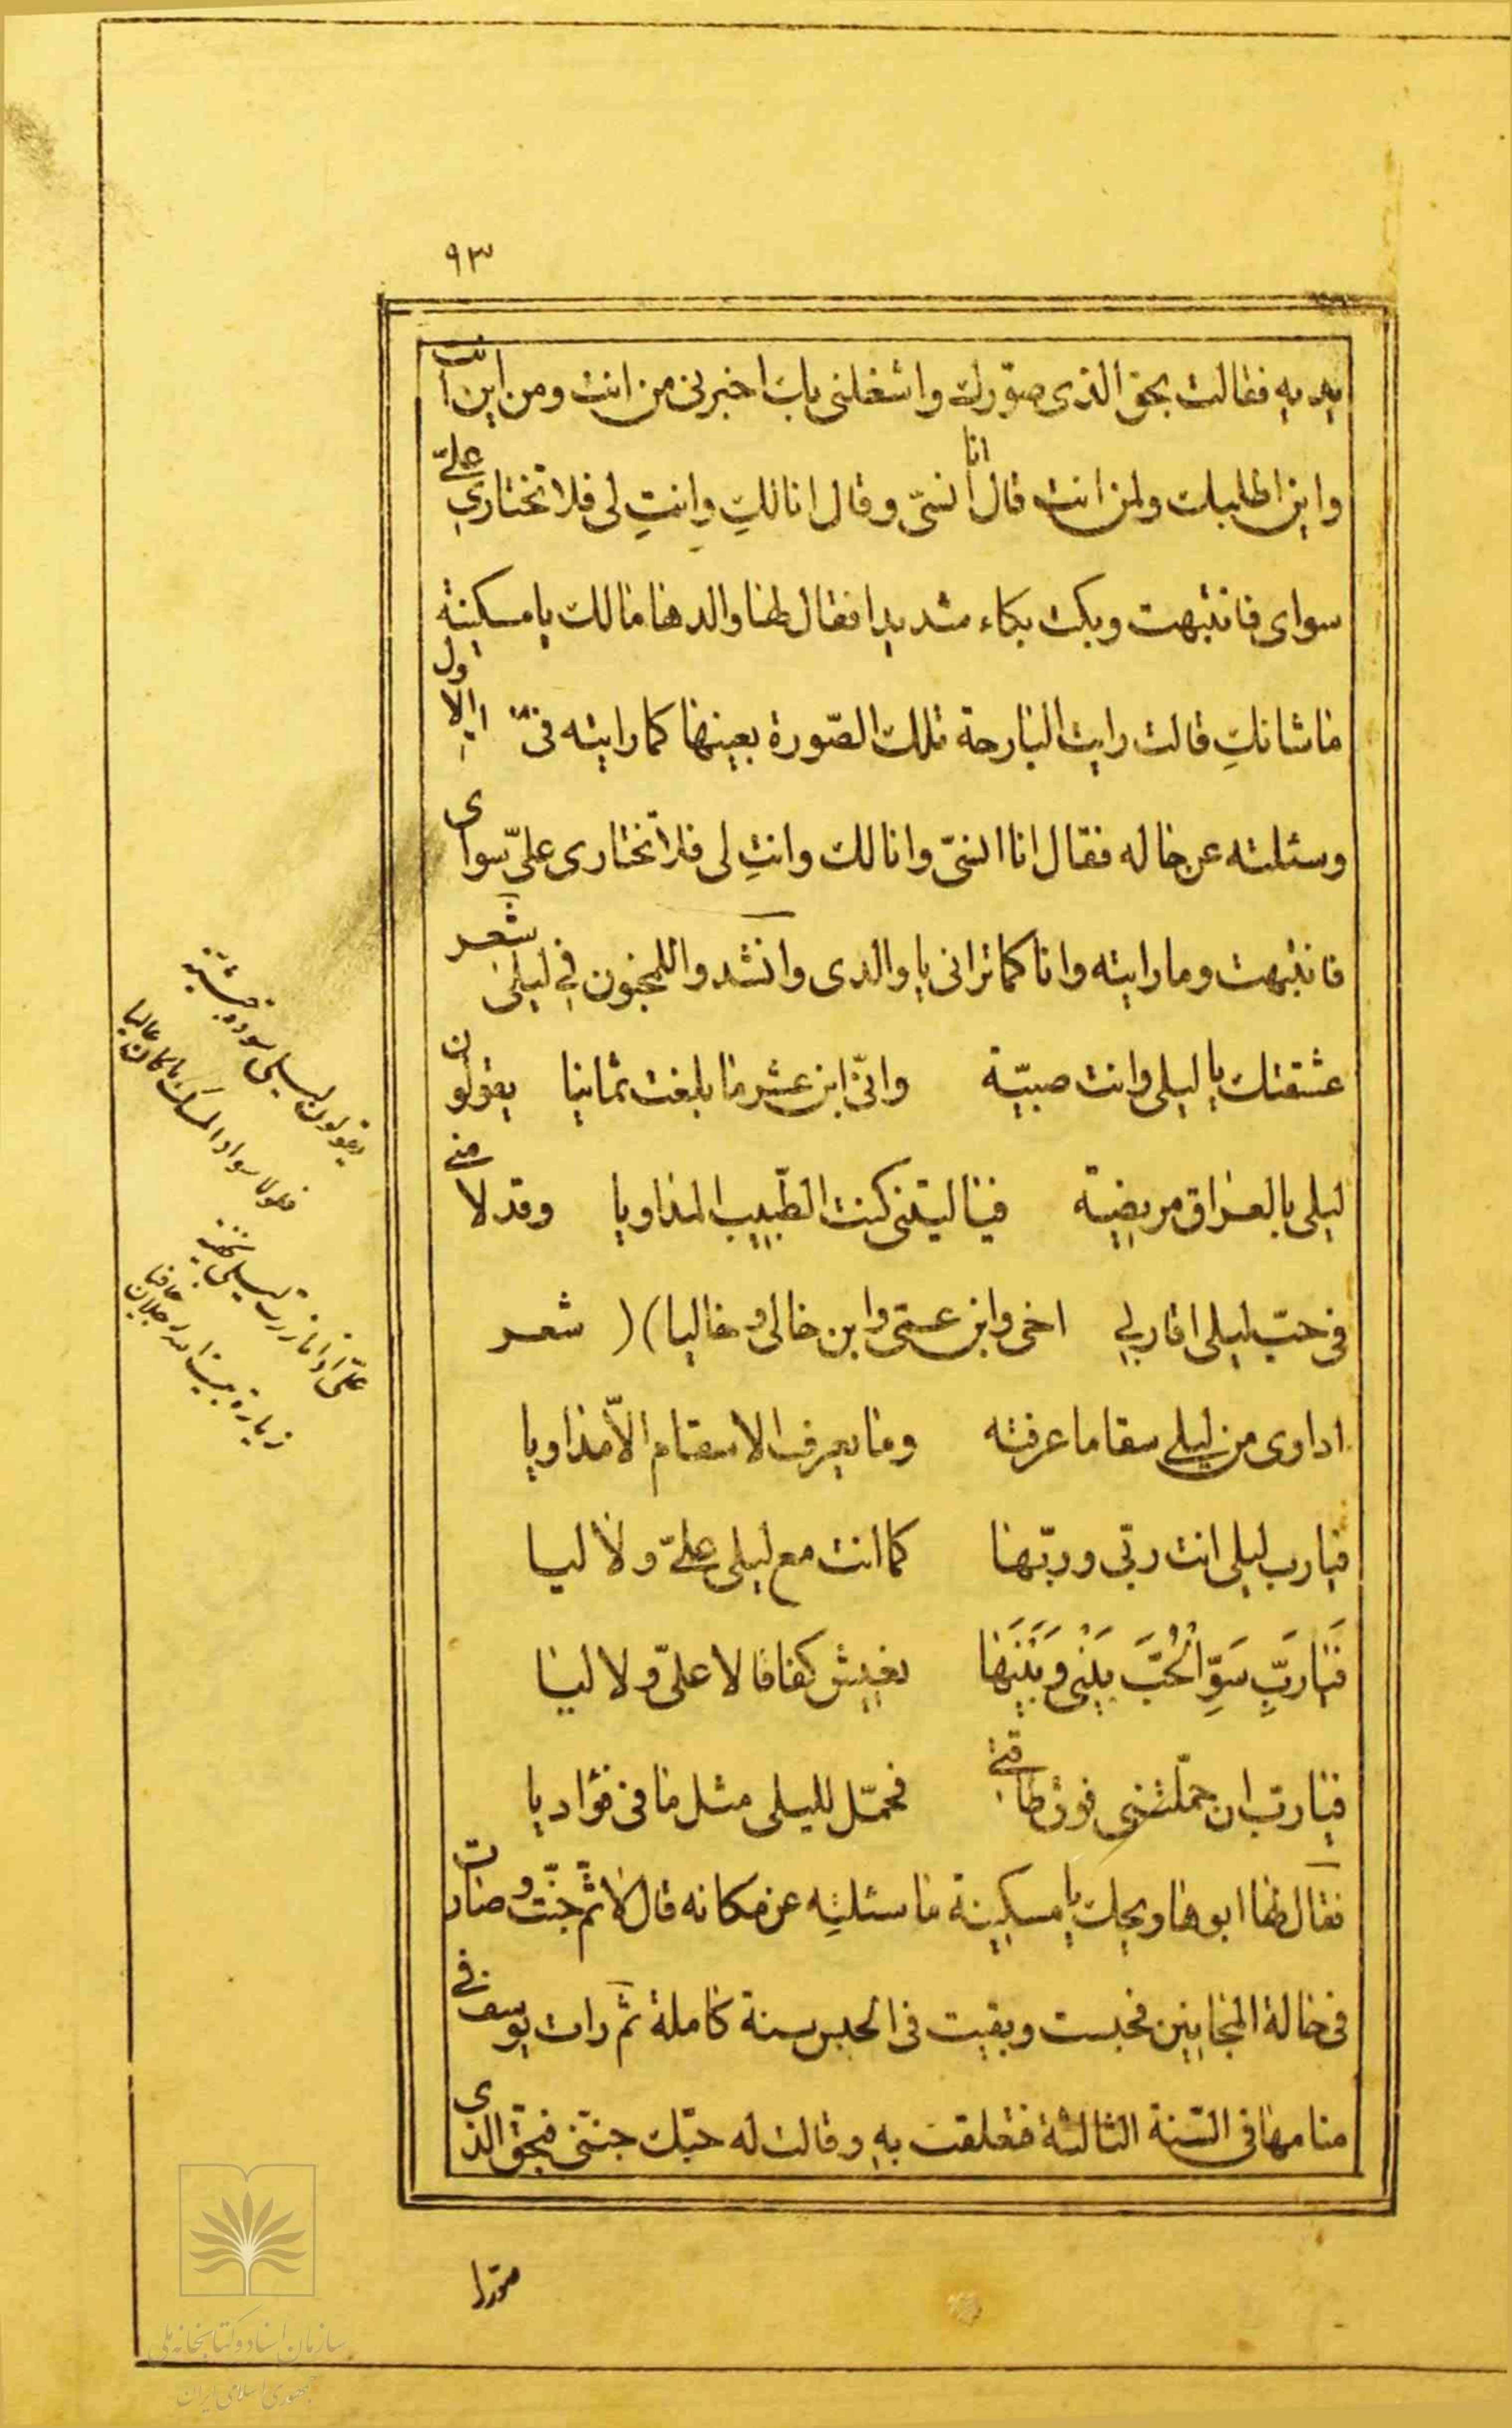 ٩٣
يديه فقالت بحق الذي صوّرك واشغلني بك اخبرني من انت ومن اين انت
واين اطلبك ولمن انت قال انا انسيّ وقال انا لكِ وانتِ لي فلا تختاري عليّ
سواى فانتبهت وبكت بكاء شديدا فقال لها والدها مالك يا مسكينة
ما شانكِ قالت رايت البارحة تلك الصّورة بعينها كما رايته في الاول
وسئلته عن حاله فقال انا انسىّ وانا لك وانتِ لى فلا تختارى علىّ سواى
فانتبهت وما رايته وانا كما تراني يا والدى وانشدوا للمجنون في ليلى شعر
عشقتك يا ليلى وانت صبيّة وانّى ابن عشر ما بلغت ثمانيا يقولون
ليلى بالعراق مريضة فيا ليتنى كنت الطّبيب المداويا وقد لامنى
فى حبّ ليلى اقاربي اخى وابن عمّى وابن خالى وخاليا ) ( شعر
اداوى من ليلى سقاما عرفته وما يعرف الاسقام الّا مداويا
فيا رب ليلى انت ربّى وربّها كما انت مع ليلى علىّ ولا ليا
فَيَا رَبِّ سَوِّ الْحُبَّ بَيْنِى وَبَيْنَهَا يعيش كفافا لا علىّ ولا ليا
فيا ربّ ان حمّلتنى فوق طاقتي فحمّل لليلى مثل ما فى فؤاديا
فقال لها ابوها ويحك يا مسكينة ما سئلتِه عن مكانه قال لا ثمّ جنّت وصارت
فى حالة المجانين فحبست وبقيت فى الحبس سنة كاملة ثمّ رات يوسف في
منامها فى السّنة الثالثة فتعلقت به وقالت له حبّك جنّنى فبحقّ الذى
صوّرك
يقولون ليلى سودة حبشيّة
فلولا سواد المسك ما كان غاليا
علىّ اذا ما زرت ليلى بخفية
زيارة بيت الله رجلان حافيا
سازمان اسناد و کتابخانه ملی
جمهوری اسلامی ایران